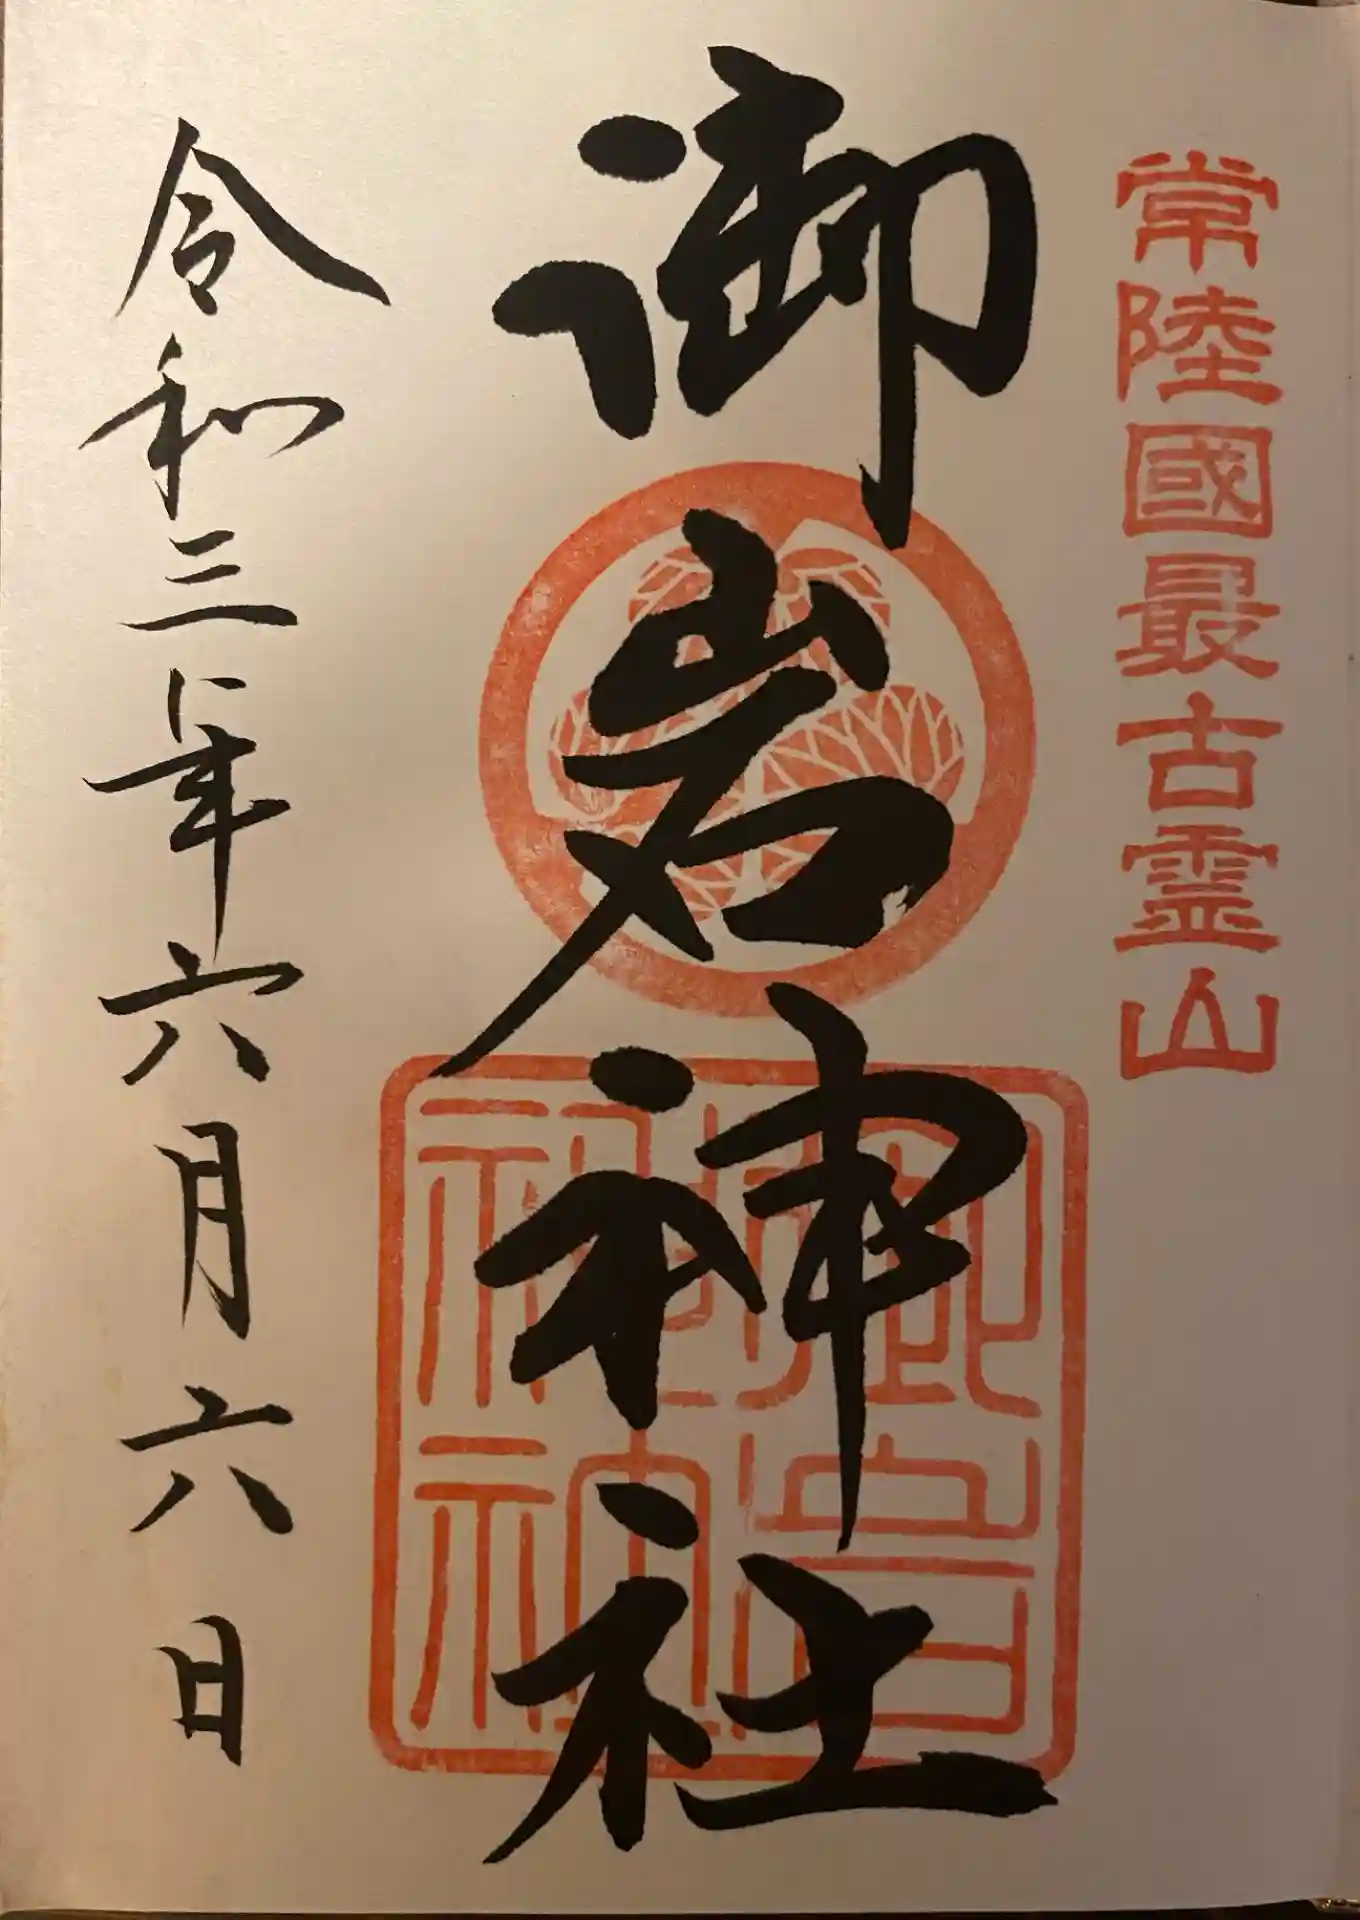 常陸國最古霊山
御岩神社
御岩神社
令和三年六月六日